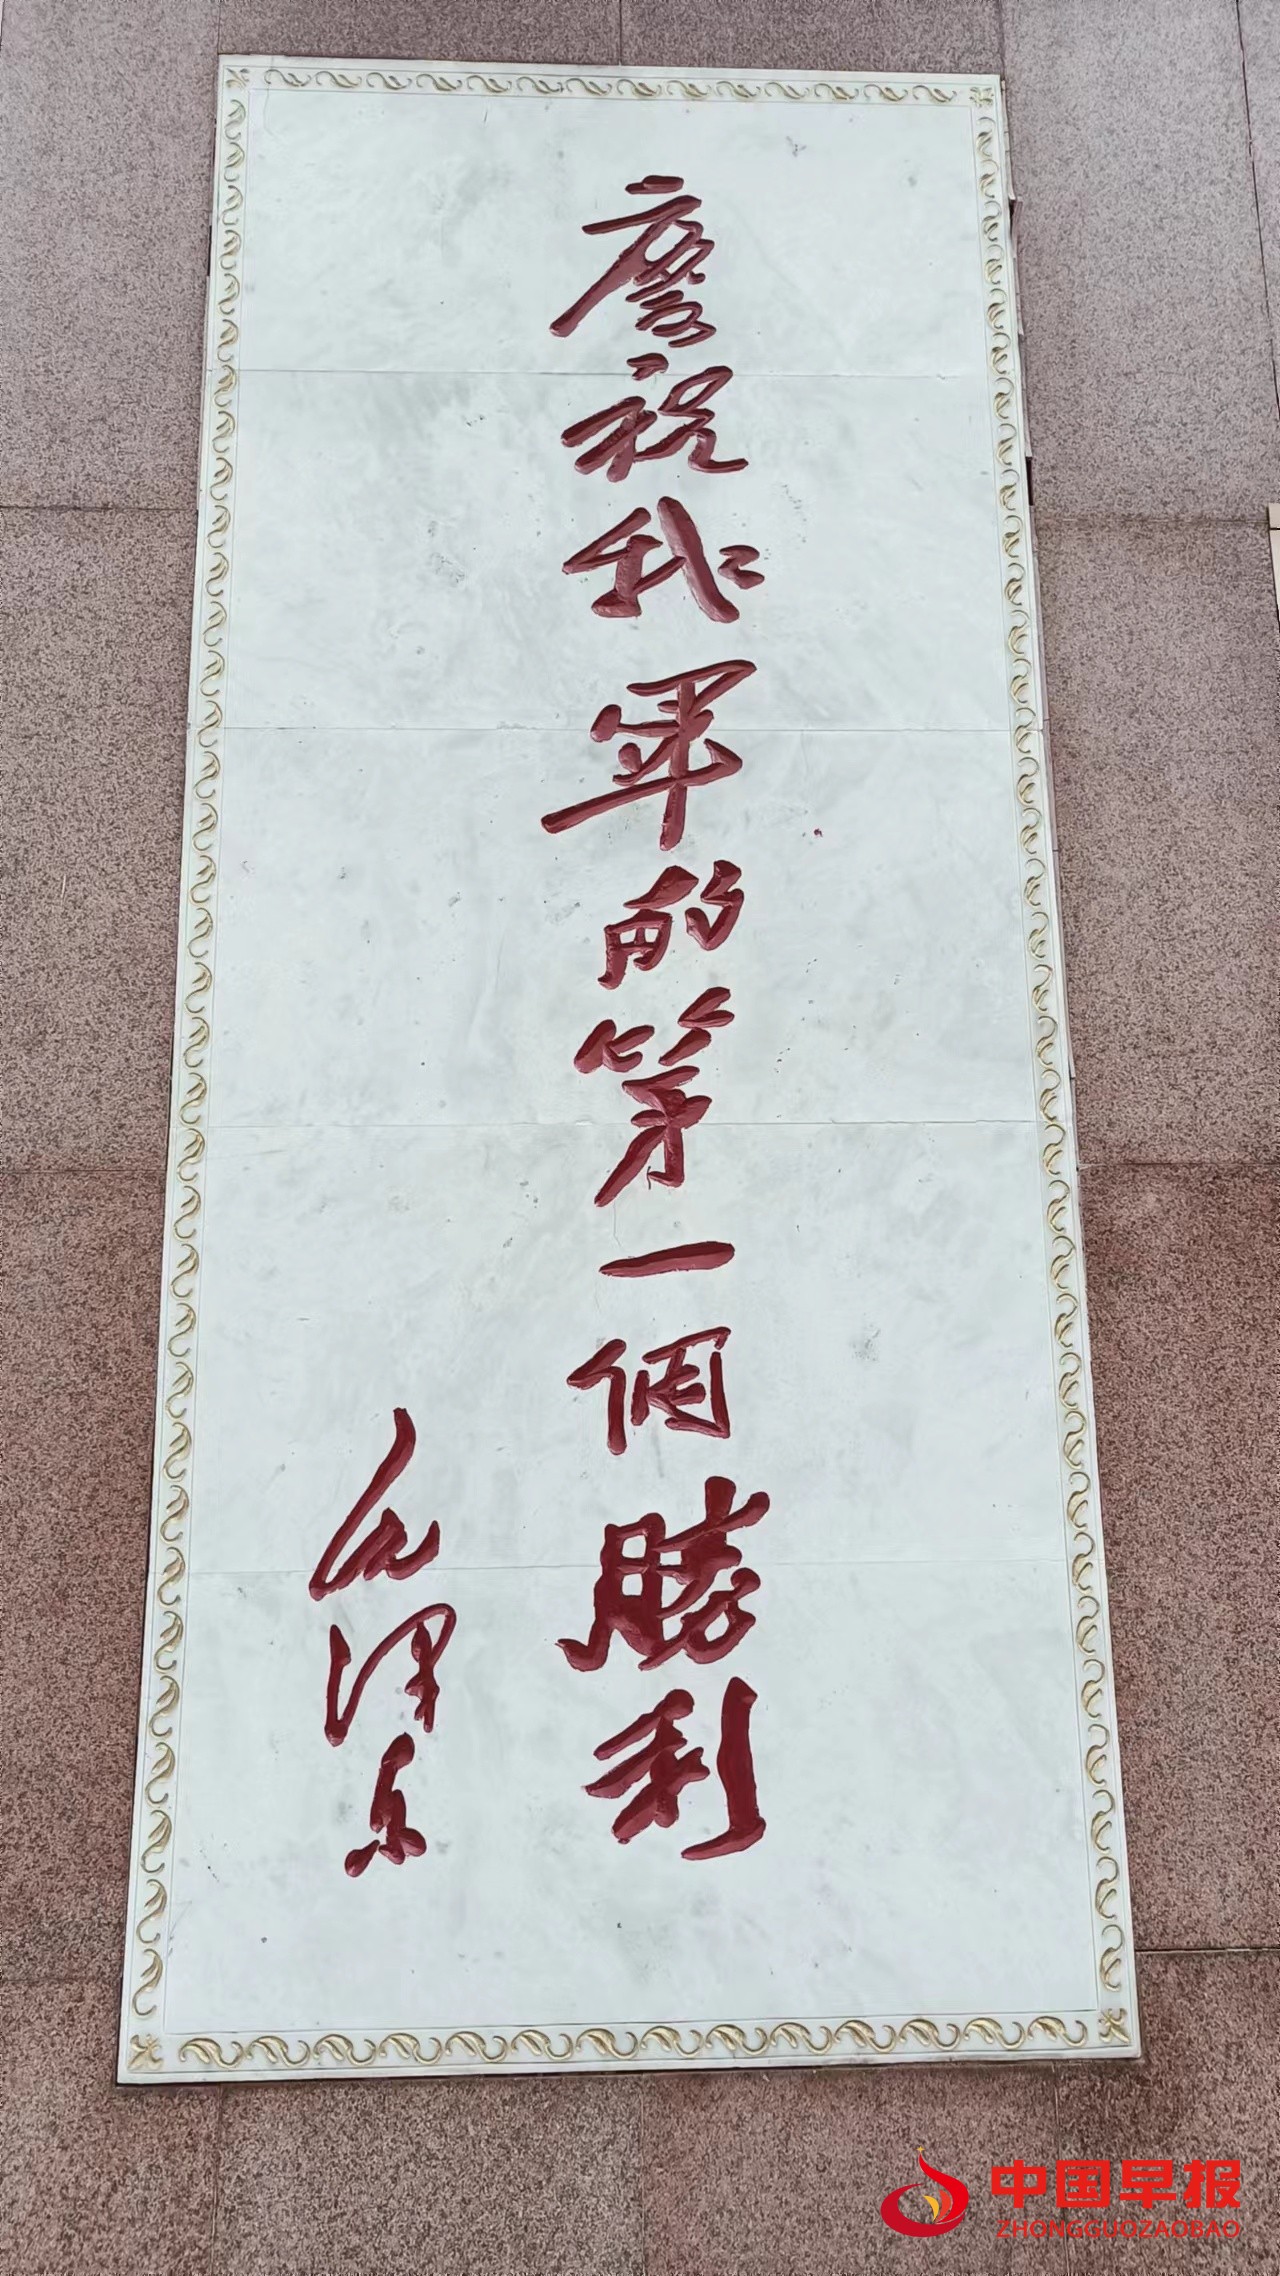 慶祝我軍的第一個勝利
毛泽东
中国早报
ZHONGGUOZAOBAO